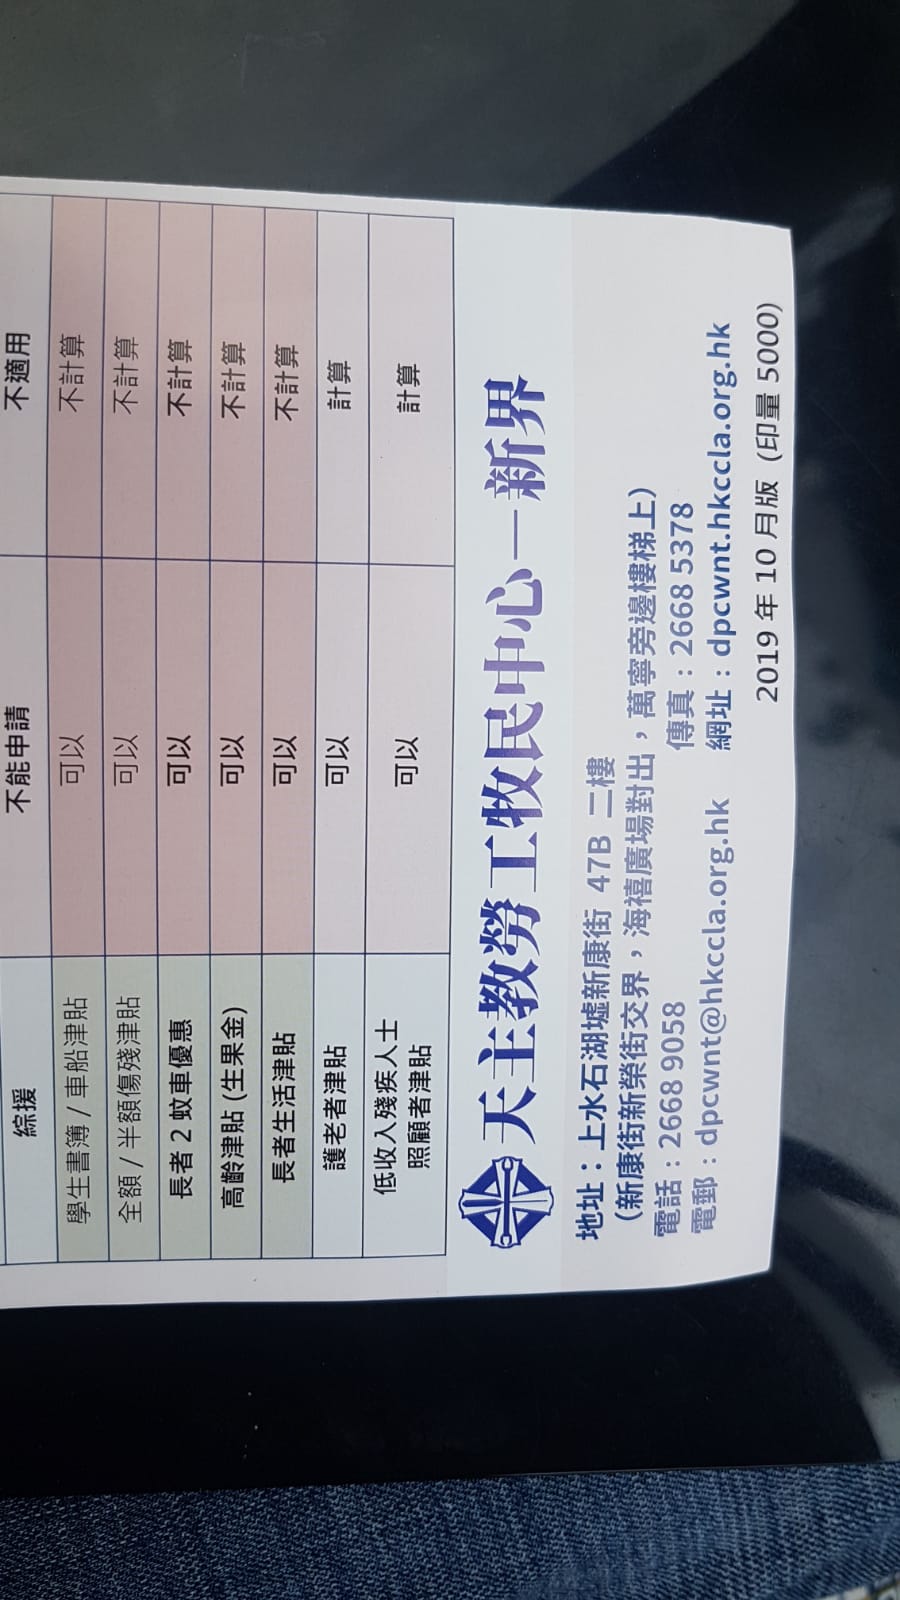 綜援 不能申請 不適用
學生書簿 / 車船津貼 可以 不計算
全額 / 半額傷殘津貼 可以 不計算
長者 2 蚊車優惠 可以 不計算
高齡津貼 (生果金) 可以 不計算
長者生活津貼 可以 不計算
護老者津貼 可以 計算
低收入殘疾人士
照顧者津貼 可以 計算
天主教勞工牧民中心－新界
地址：上水石湖墟新康街 47B 二樓
（新康街新榮街交界，海禧廣場對出，萬寧旁邊樓梯上）
電話：2668 9058 傳真：2668 5378
電郵：dpcwnt@hkccla.org.hk 網址：dpcwnt.hkccla.org.hk
2019 年 10 月版 (印量 5000)